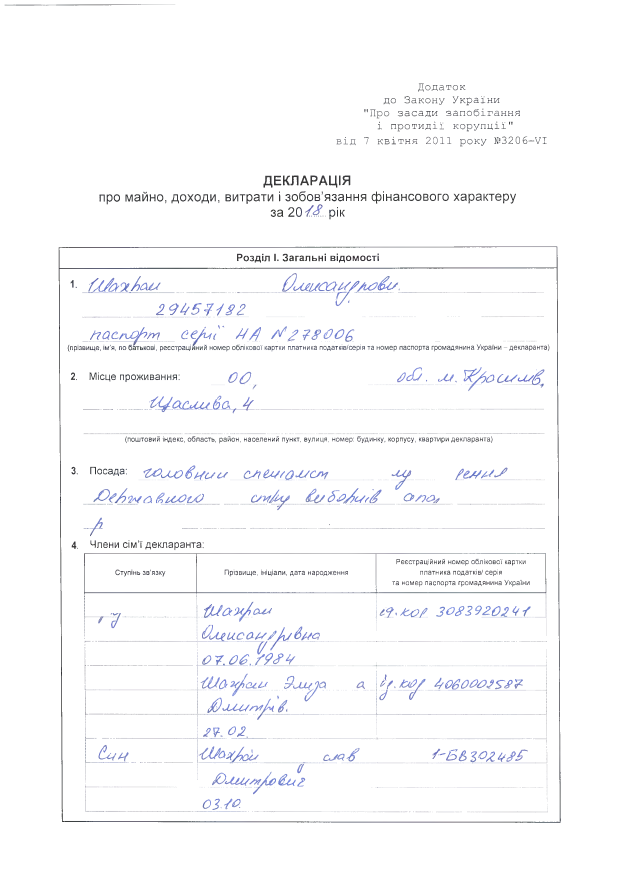 Додаток
до Закону України
"Про засади запобігання
і протидії корупції"
від 7 квітня 2011 року №3206-VI
ДЕКЛАРАЦІЯ
про майно, доходи, витрати і зобов'язання фінансового характеру
за 2018 рік
Розділ І. Загальні відомості
1. Шахрай Олександрови.
29457182
паспорт серії НА №278006
(прізвище, ім'я, по батькові, реєстраційний номер облікової картки платника податків/серія та номер паспорта громадянина України – декларанта)
2. Місце проживання: 00, обл. м.
Щаслива, 4
(поштовий індекс, область, район, населений пункт, вулиця, номер: будинку, корпусу, квартири декларанта)
3. Посада: головний спеціаліст
Державного виборців
р
4. Члени сім'ї декларанта:
Ступінь зв'язку
Прізвище, ініціали, дата народження
Реєстраційний номер облікової картки
платника податків/ серія
та номер паспорта громадянина України
Шахрай ід.код 3083920241
Олександрівна
07.06.1984
Шахрай а ід.код 4060002587
Дмитрів.
27.02
Син Шахрай слав 1-БВ302485
Дмитрович
03.10.